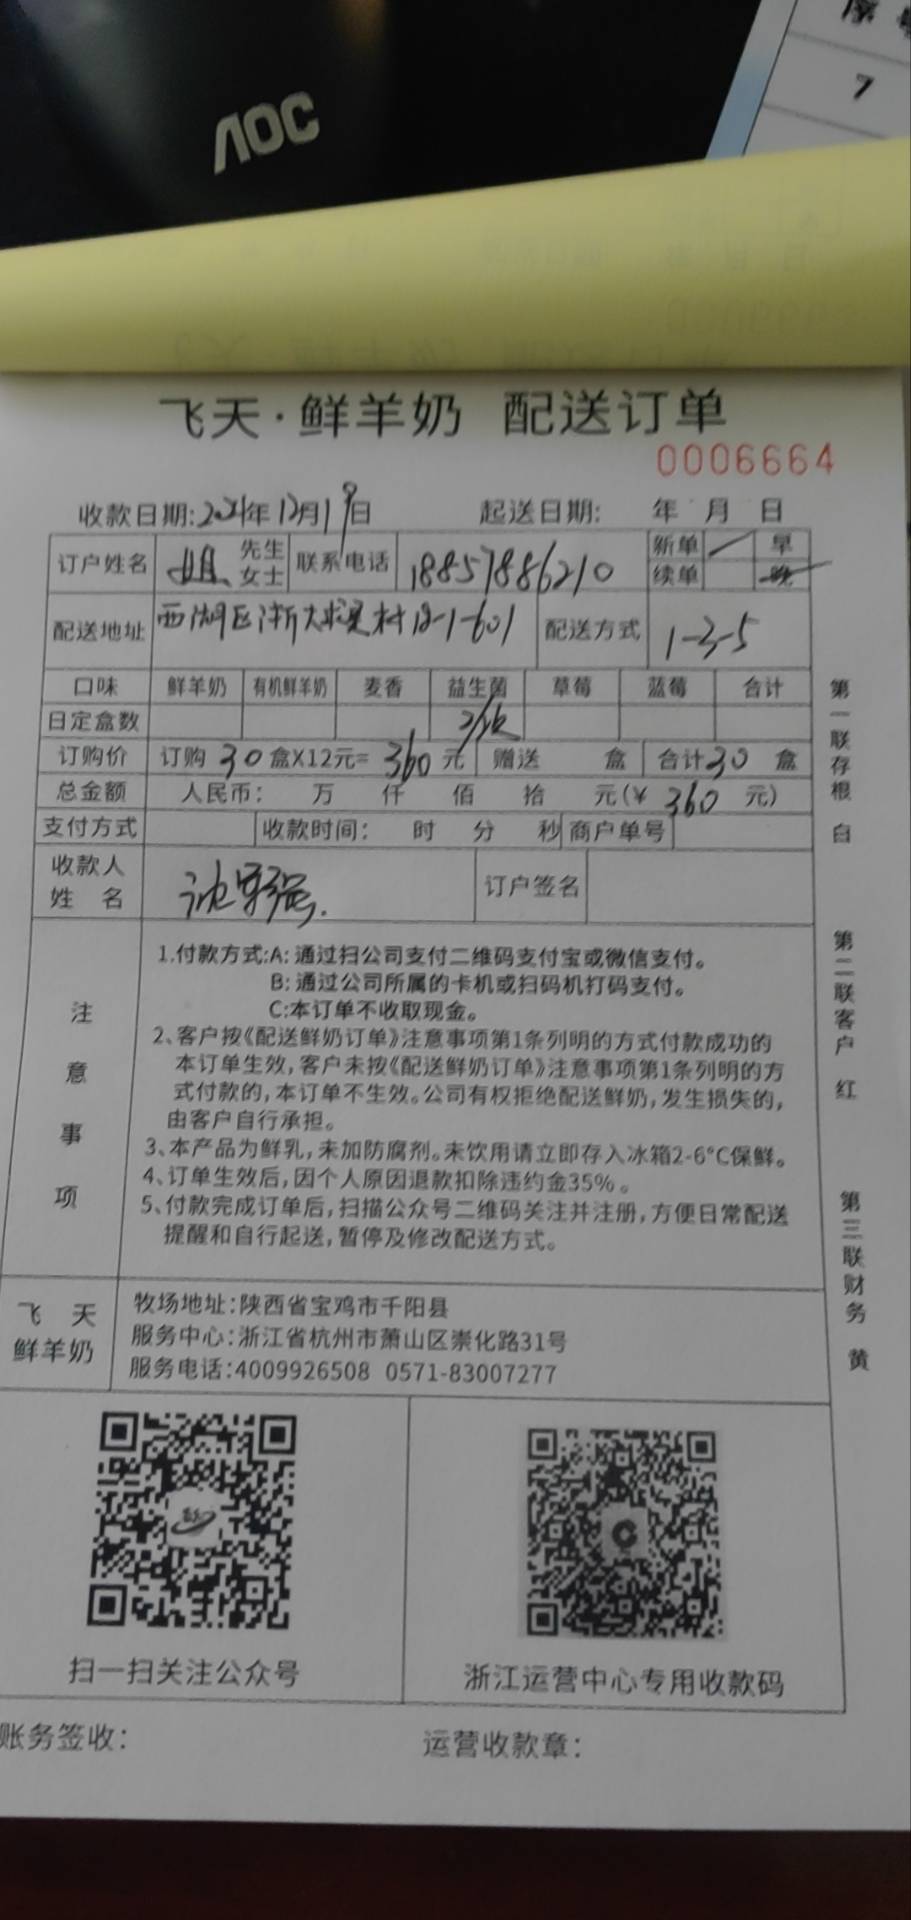 AOC
7
飞天·鲜羊奶 配送订单
0006664
收款日期:2021年12月19日 起送日期: 年 月 日
订户姓名 姐 先生 女士 联系电话 18857886210 新单 早
续单 晚
配送地址 西湖区浙大求是村12-1-601 配送方式 1-3-5
口味 鲜羊奶 有机鲜羊奶 麦香 益生菌 草莓 蓝莓 合计
日定盒数 2/次
订购价 订购 30 盒X12元= 360 元 赠送 盒 合计30 盒
总金额 人民币: 万 仟 佰 拾 元(¥ 360 元)
支付方式 收款时间: 时 分 秒 商户单号
收款人
姓 名 订户签名
注意事项
1.付款方式:A:通过扫公司支付二维码支付宝或微信支付。
B:通过公司所属的卡机或扫码机打码支付。
C:本订单不收取现金。
2、客户按《配送鲜奶订单》注意事项第1条列明的方式付款成功的
本订单生效,客户未按《配送鲜奶订单》注意事项第1条列明的方
式付款的,本订单不生效。公司有权拒绝配送鲜奶,发生损失的,
由客户自行承担。
3、本产品为鲜乳,未加防腐剂。未饮用请立即存入冰箱2-6°C保鲜。
4、订单生效后,因个人原因退款扣除违约金35%。
5、付款完成订单后,扫描公众号二维码关注并注册,方便日常配送
提醒和自行起送,暂停及修改配送方式。
飞 天
鲜羊奶
牧场地址:陕西省宝鸡市千阳县
服务中心:浙江省杭州市萧山区崇化路31号
服务电话:4009926508 0571-83007277
扫一扫关注公众号 浙江运营中心专用收款码
账务签收: 运营收款章:
第一联存根 白
第二联客户 红
第三联财务 黄